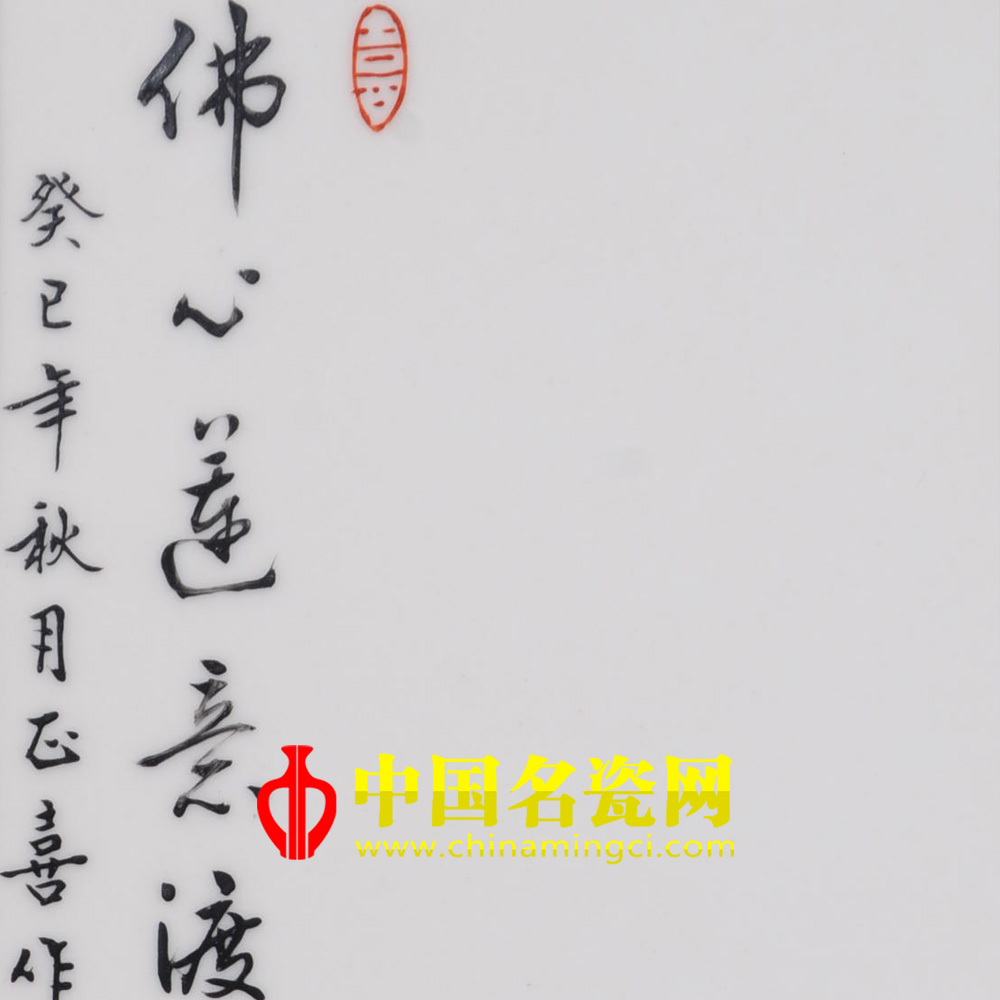 佛心蓮意渡
癸巳年秋月正喜作
中国名瓷网
www.chinamingci.com